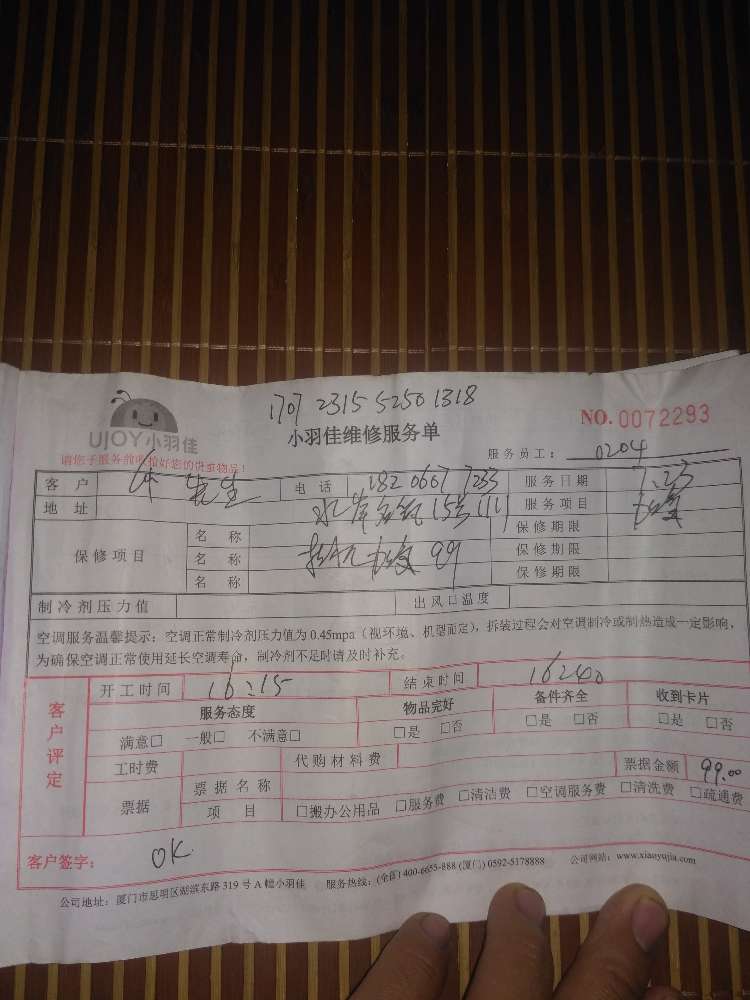 1707 2315 5250 1318
UJOY小羽佳
小羽佳维修服务单
NO. 0072293
请您于服务前收拾好您的贵重物品!
服务员工: 0204
客户 先生 电话 182 0667 7233 服务日期 7.23
地址 水岸名筑15号111 服务项目
保修项目 名称 99 保修期限
名称 保修期限
名称 保修期限
制冷剂压力值 出风口温度
空调服务温馨提示:空调正常制冷剂压力值为0.45mpa(视环境、机型而定),拆装过程会对空调制冷或制热造成一定影响,
为确保空调正常使用延长空调寿命,制冷剂不足时请及时补充。
客户评定
开工时间 16:15 结束时间 16:40
服务态度 物品完好 备件齐全 收到卡片
满意□ 一般□ 不满意□ □是 □否 □是 □否 □是 □否
工时费 代购材料费
票据 票据名称 票据金额 99.00
项目 □搬办公用品 □服务费 □清洁费 □空调服务费 □清洗费 □疏通费
客户签字: OK
公司地址:厦门市思明区湖滨东路319号A幢小羽佳 服务热线:(全国)400-6655-888 (厦门)0592-5178888 公司网站:www.xiaoyujia.com